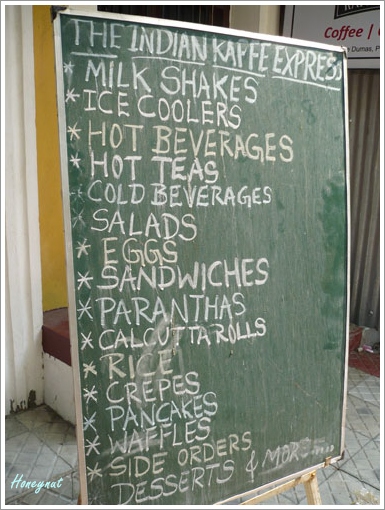 THE INDIAN KAFFE EXPRESS
* MILK SHAKES
* ICE COOLERS
* HOT BEVERAGES
* HOT TEAS
* COLD BEVERAGES
* SALADS
* EGGS
* SANDWICHES
* PARANTHAS
* CALCUTTA ROLLS
* RICE
* CREPES
* PANCAKES
* WAFFLES
* SIDE ORDERS
* DESSERTS & MORE....
Coffee |
Dumas, P
Honeynut